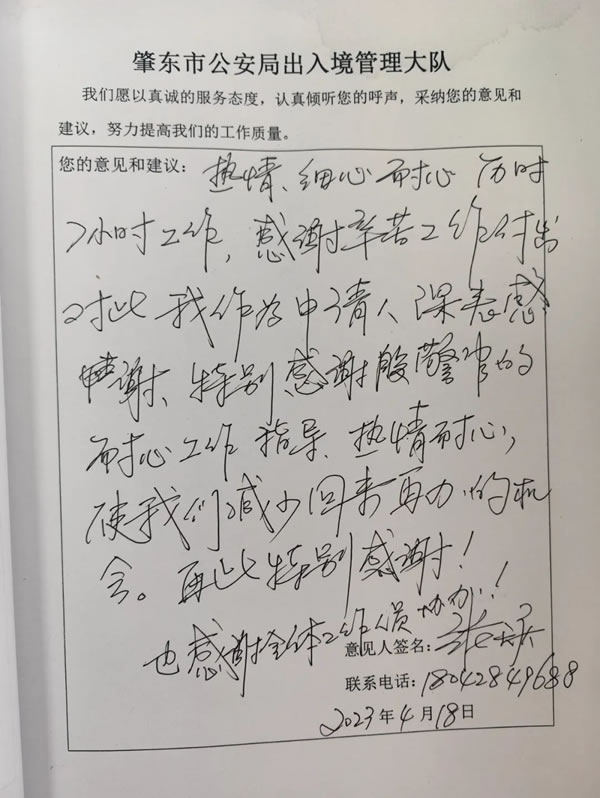 肇东市公安局出入境管理大队
我们愿以真诚的服务态度，认真倾听您的呼声，采纳您的意见和
建议，努力提高我们的工作质量。
您的意见和建议：热情、细心耐心 历时
7小时工作，感谢辛苦工作付出
对此我作为申请人深表感
谢、特别感谢殷警官的
耐心工作指导、热情耐心，
使我们减少回来再办的机
会。再此特别感谢！
也感谢全体工作人员协办！
意见人签名：张
联系电话：18042849688
2023年4月18日